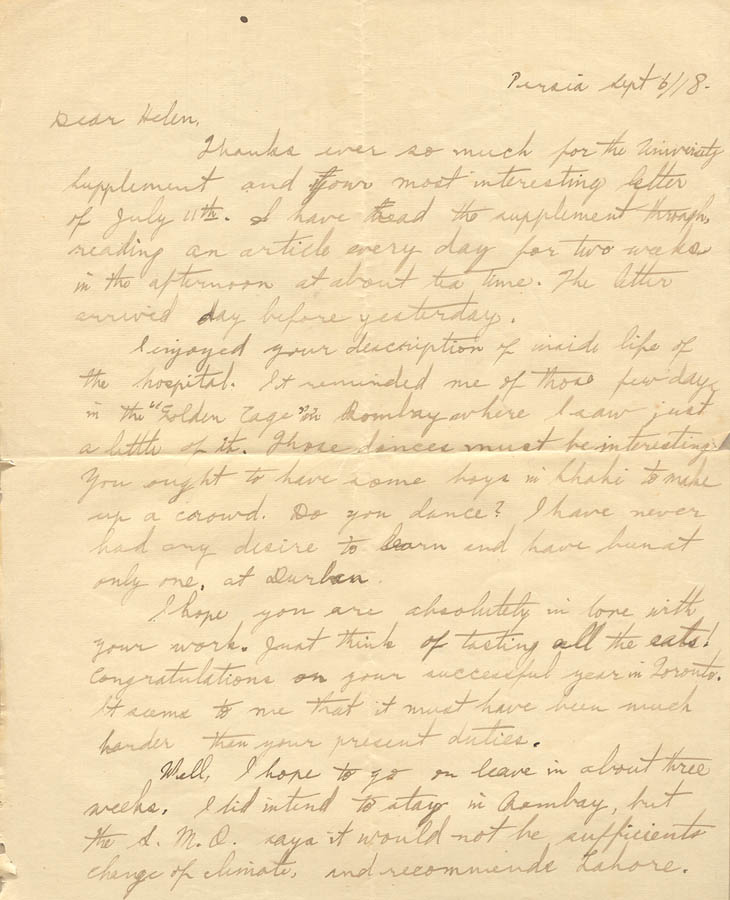 Persia Sept 6/18.
Dear Helen,
Thanks ever so much for the University
Supplement and your most interesting letter
of July 11th. I have read the supplement through,
reading an article every day for two weeks
in the afternoon at about tea time. The letter
arrived day before yesterday.
I enjoyed your description of inside life of
the hospital. It reminded me of those few days
in the "Golden Cage" in Bombay where I saw just
a little of it. Those dances must be interesting.
You ought to have some boys in khaki to make
up a crowd. Do you dance? I have never
had any desire to learn and have been at
only one, at Durban.
I hope you are absolutely in love with
your work. Just think of tasting all the eats!
Congratulations on your successful year in Toronto.
It seems to me that it must have been much
harder than your present duties.
Well, I hope to go on leave in about three
weeks. I did intend to stay in Bombay, but
the S. M. O. says it would not be sufficient
change of climate, and recommends Lahore.